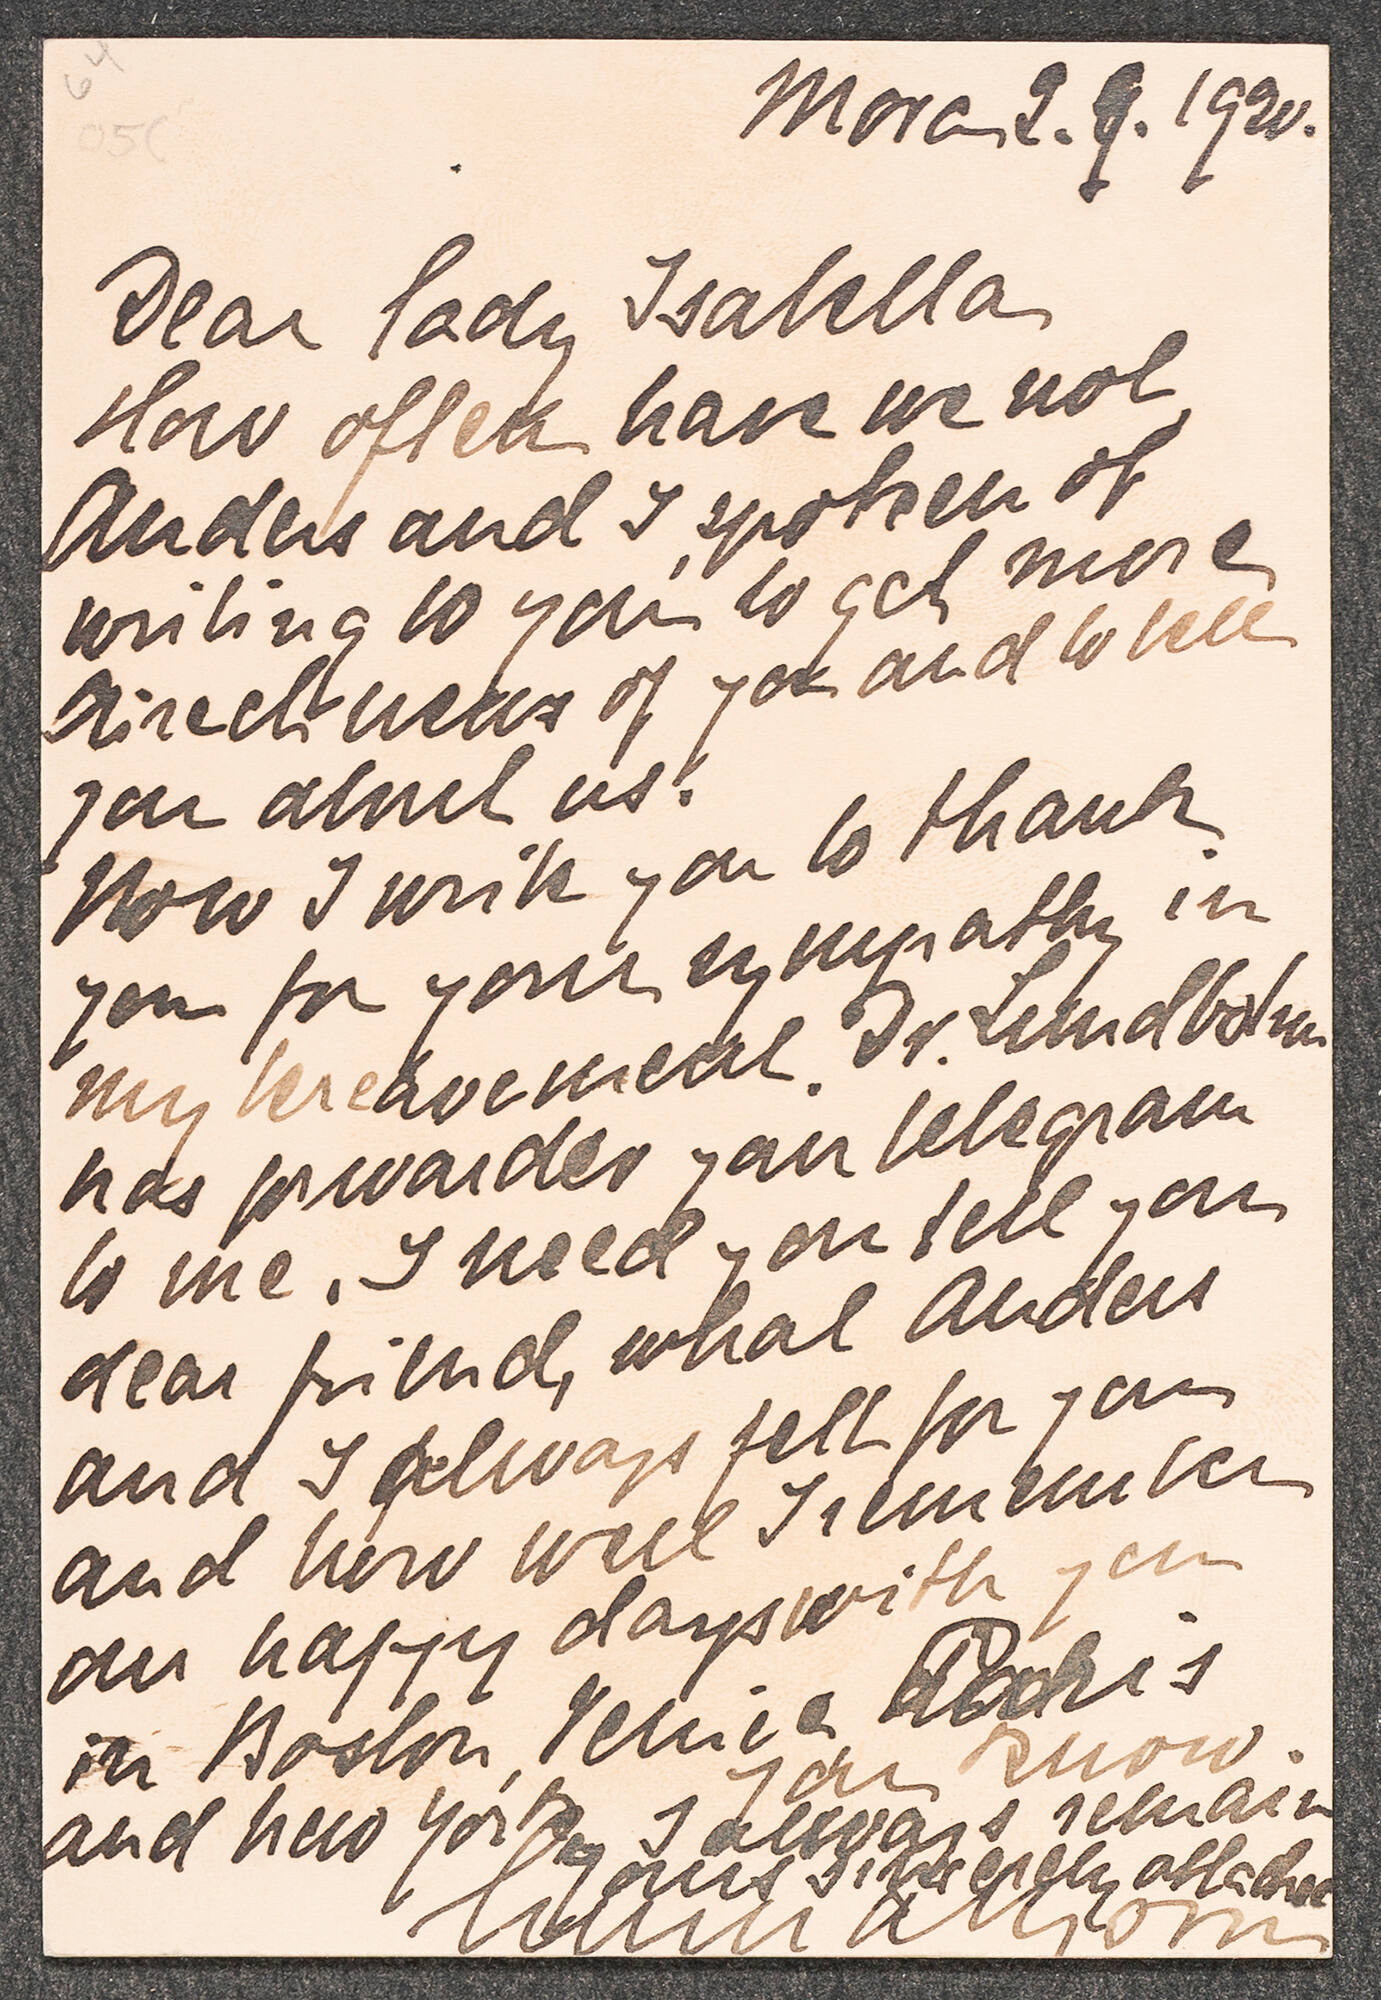 64
05(
Mora 2. 9. 1920.
Dear lady Isabella
How often have we not,
Anders and I, spoken of
writing to you, to get more
direct news of you and to tell
you about us!
Now I write you to thank
you for your sympathy in
my bereavement. Dr. Lundbohm
has forwarded your telegram
to me. I need you tell you
dear friend, what Anders
and I always felt for you
and how well I remember
our happy days with you
in Boston, Venice Paris
and new York, you know.
I always remain
yours sincerely attached
Emma Zorn